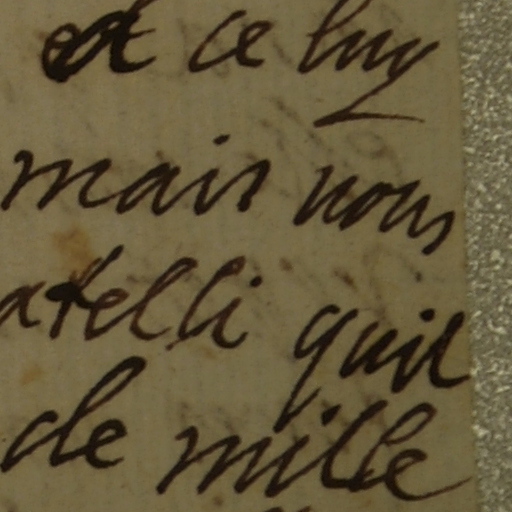 et ce luy
mais nous
atelli quil
de mille